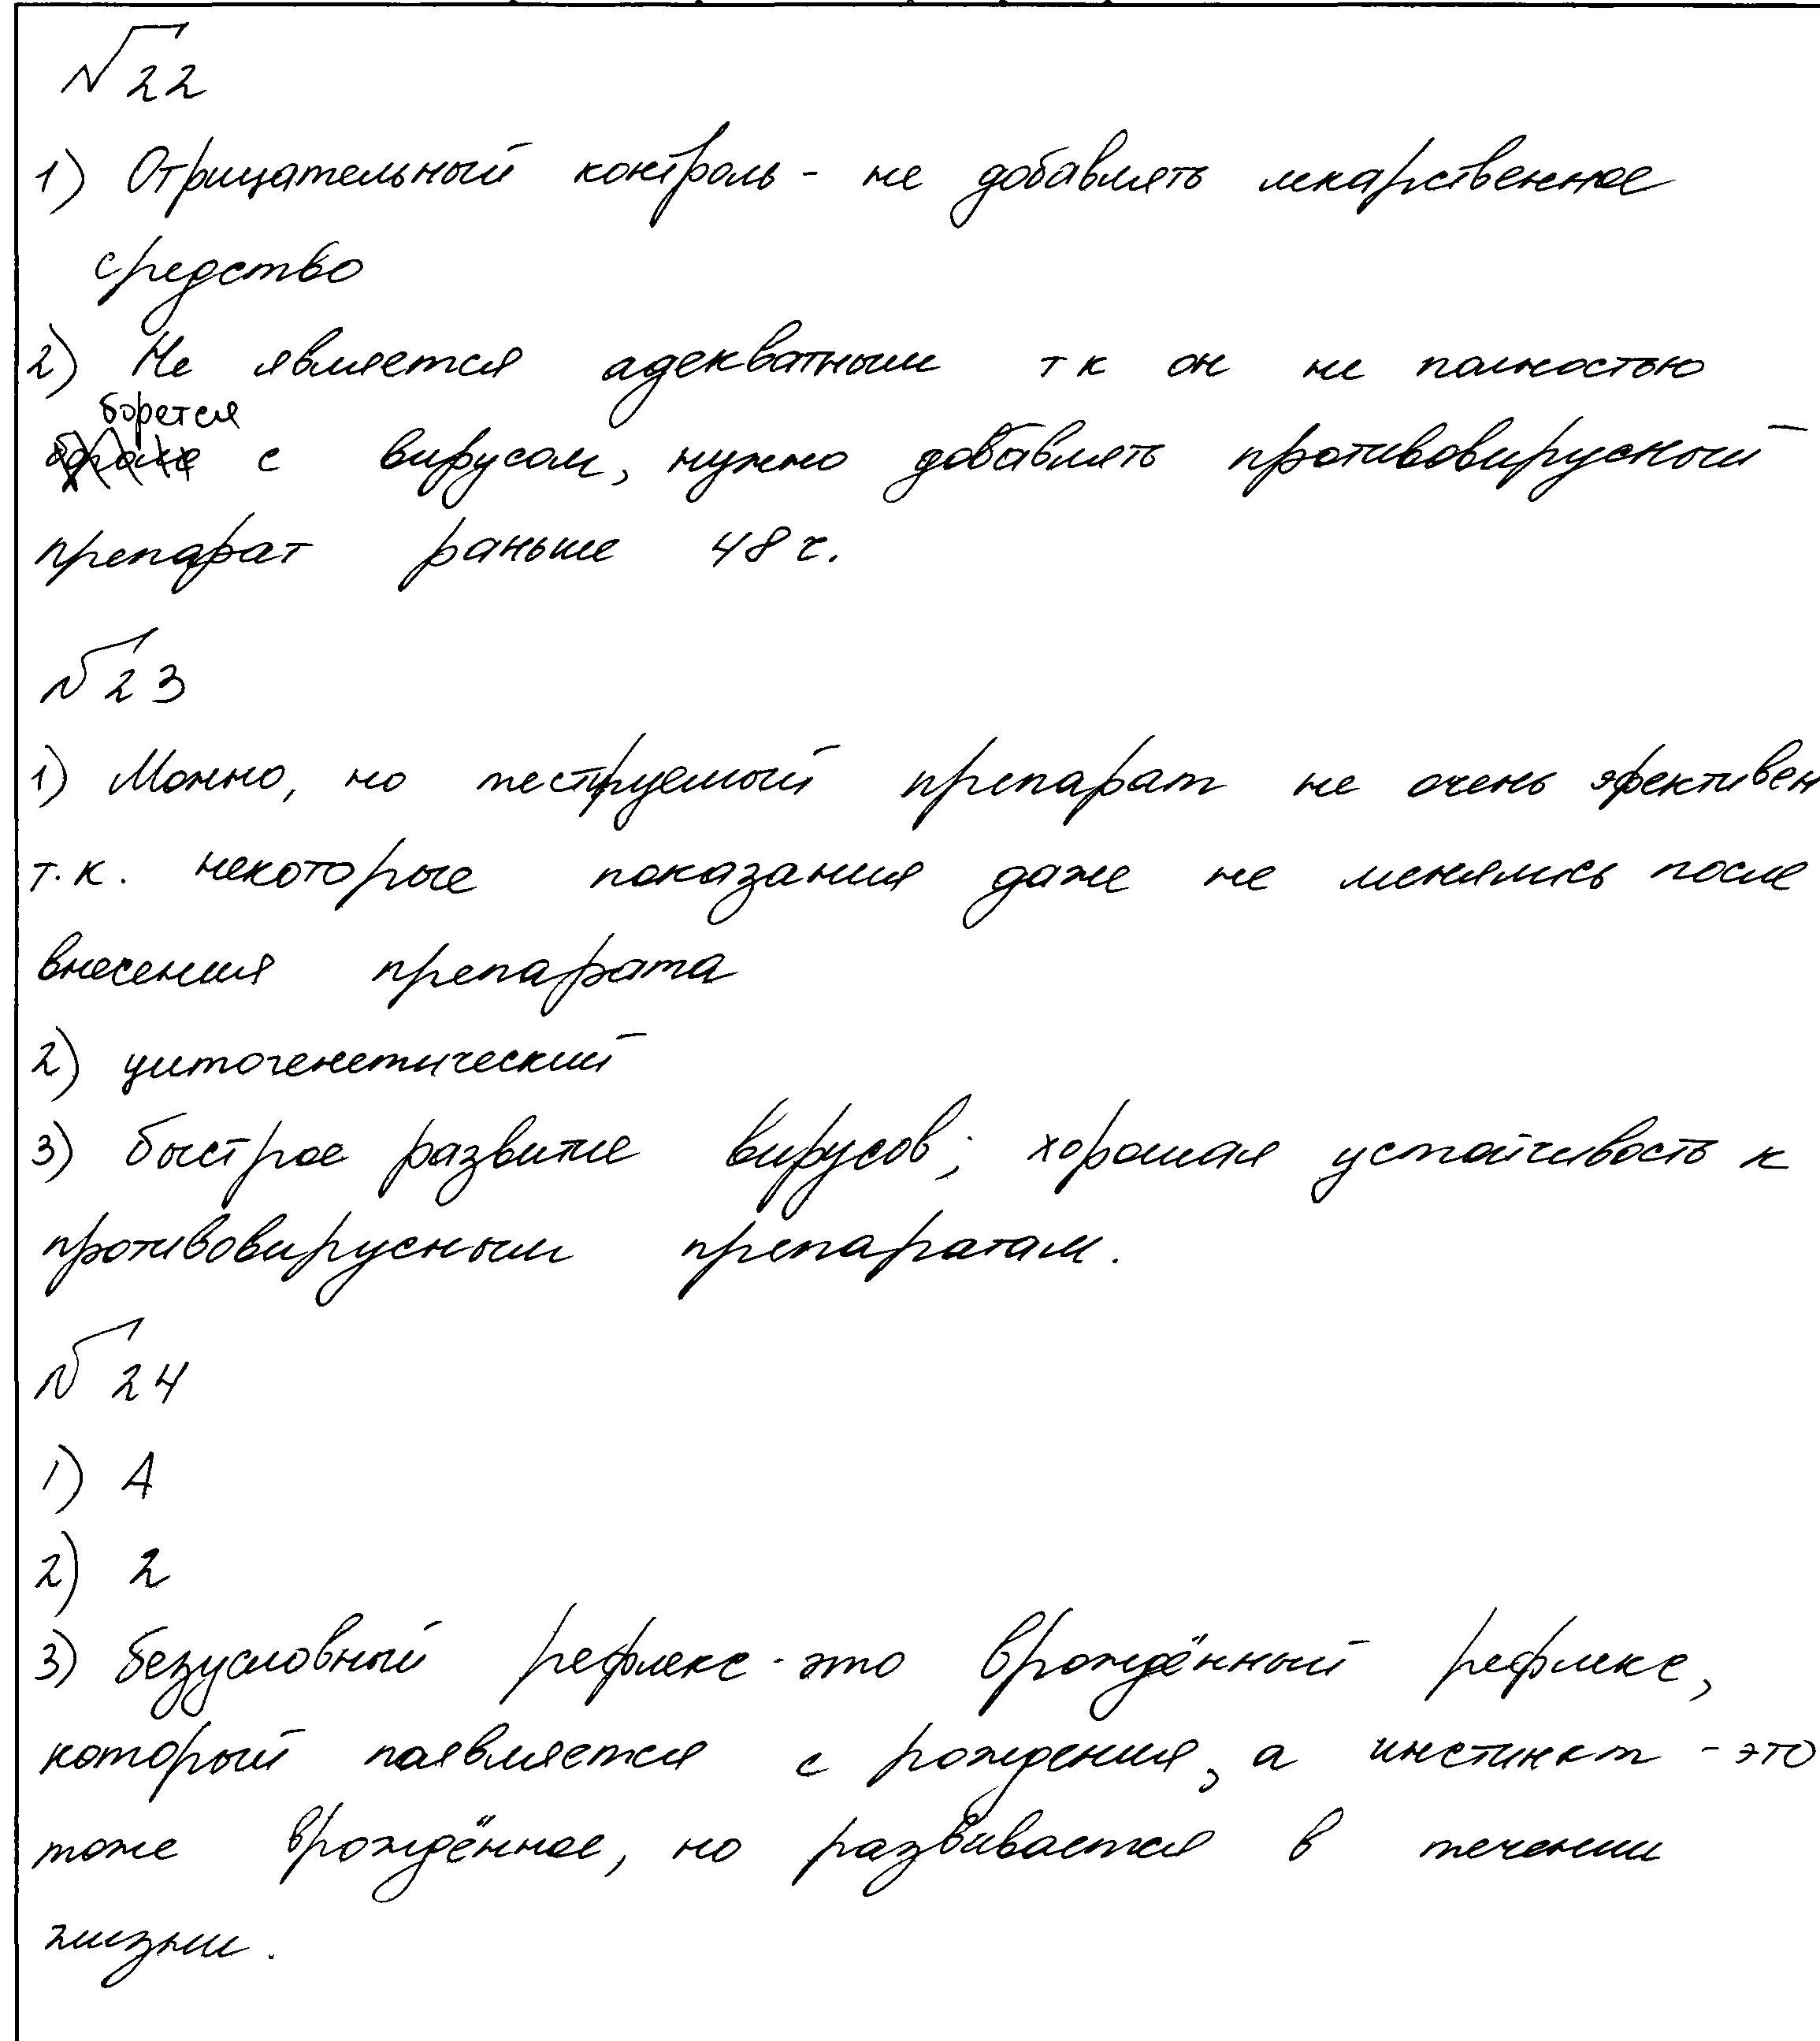 №22
1) Отрицательный контроль - не добавлять лекарственное
средство
2) Не является адекватным т к он не полностью
борется
с вирусом, нужно добавлять противовирусный
препарат раньше 48 ч.
№23
1) Можно, но тестируемый препарат не очень эфективен
т.к. некоторые показания даже не менялись после
внесения препарата
2) цитогенетический
3) быстрое развитие вирусов; хорошая устойчивость к
противовирусным препаратам.
№24
1) А
2) 2
3) безусловный рефлекс - это врождённый рефлекс,
который появляется с рождения, а инстинкт - это
тоже врождённое, но развивается в течении
жизни.